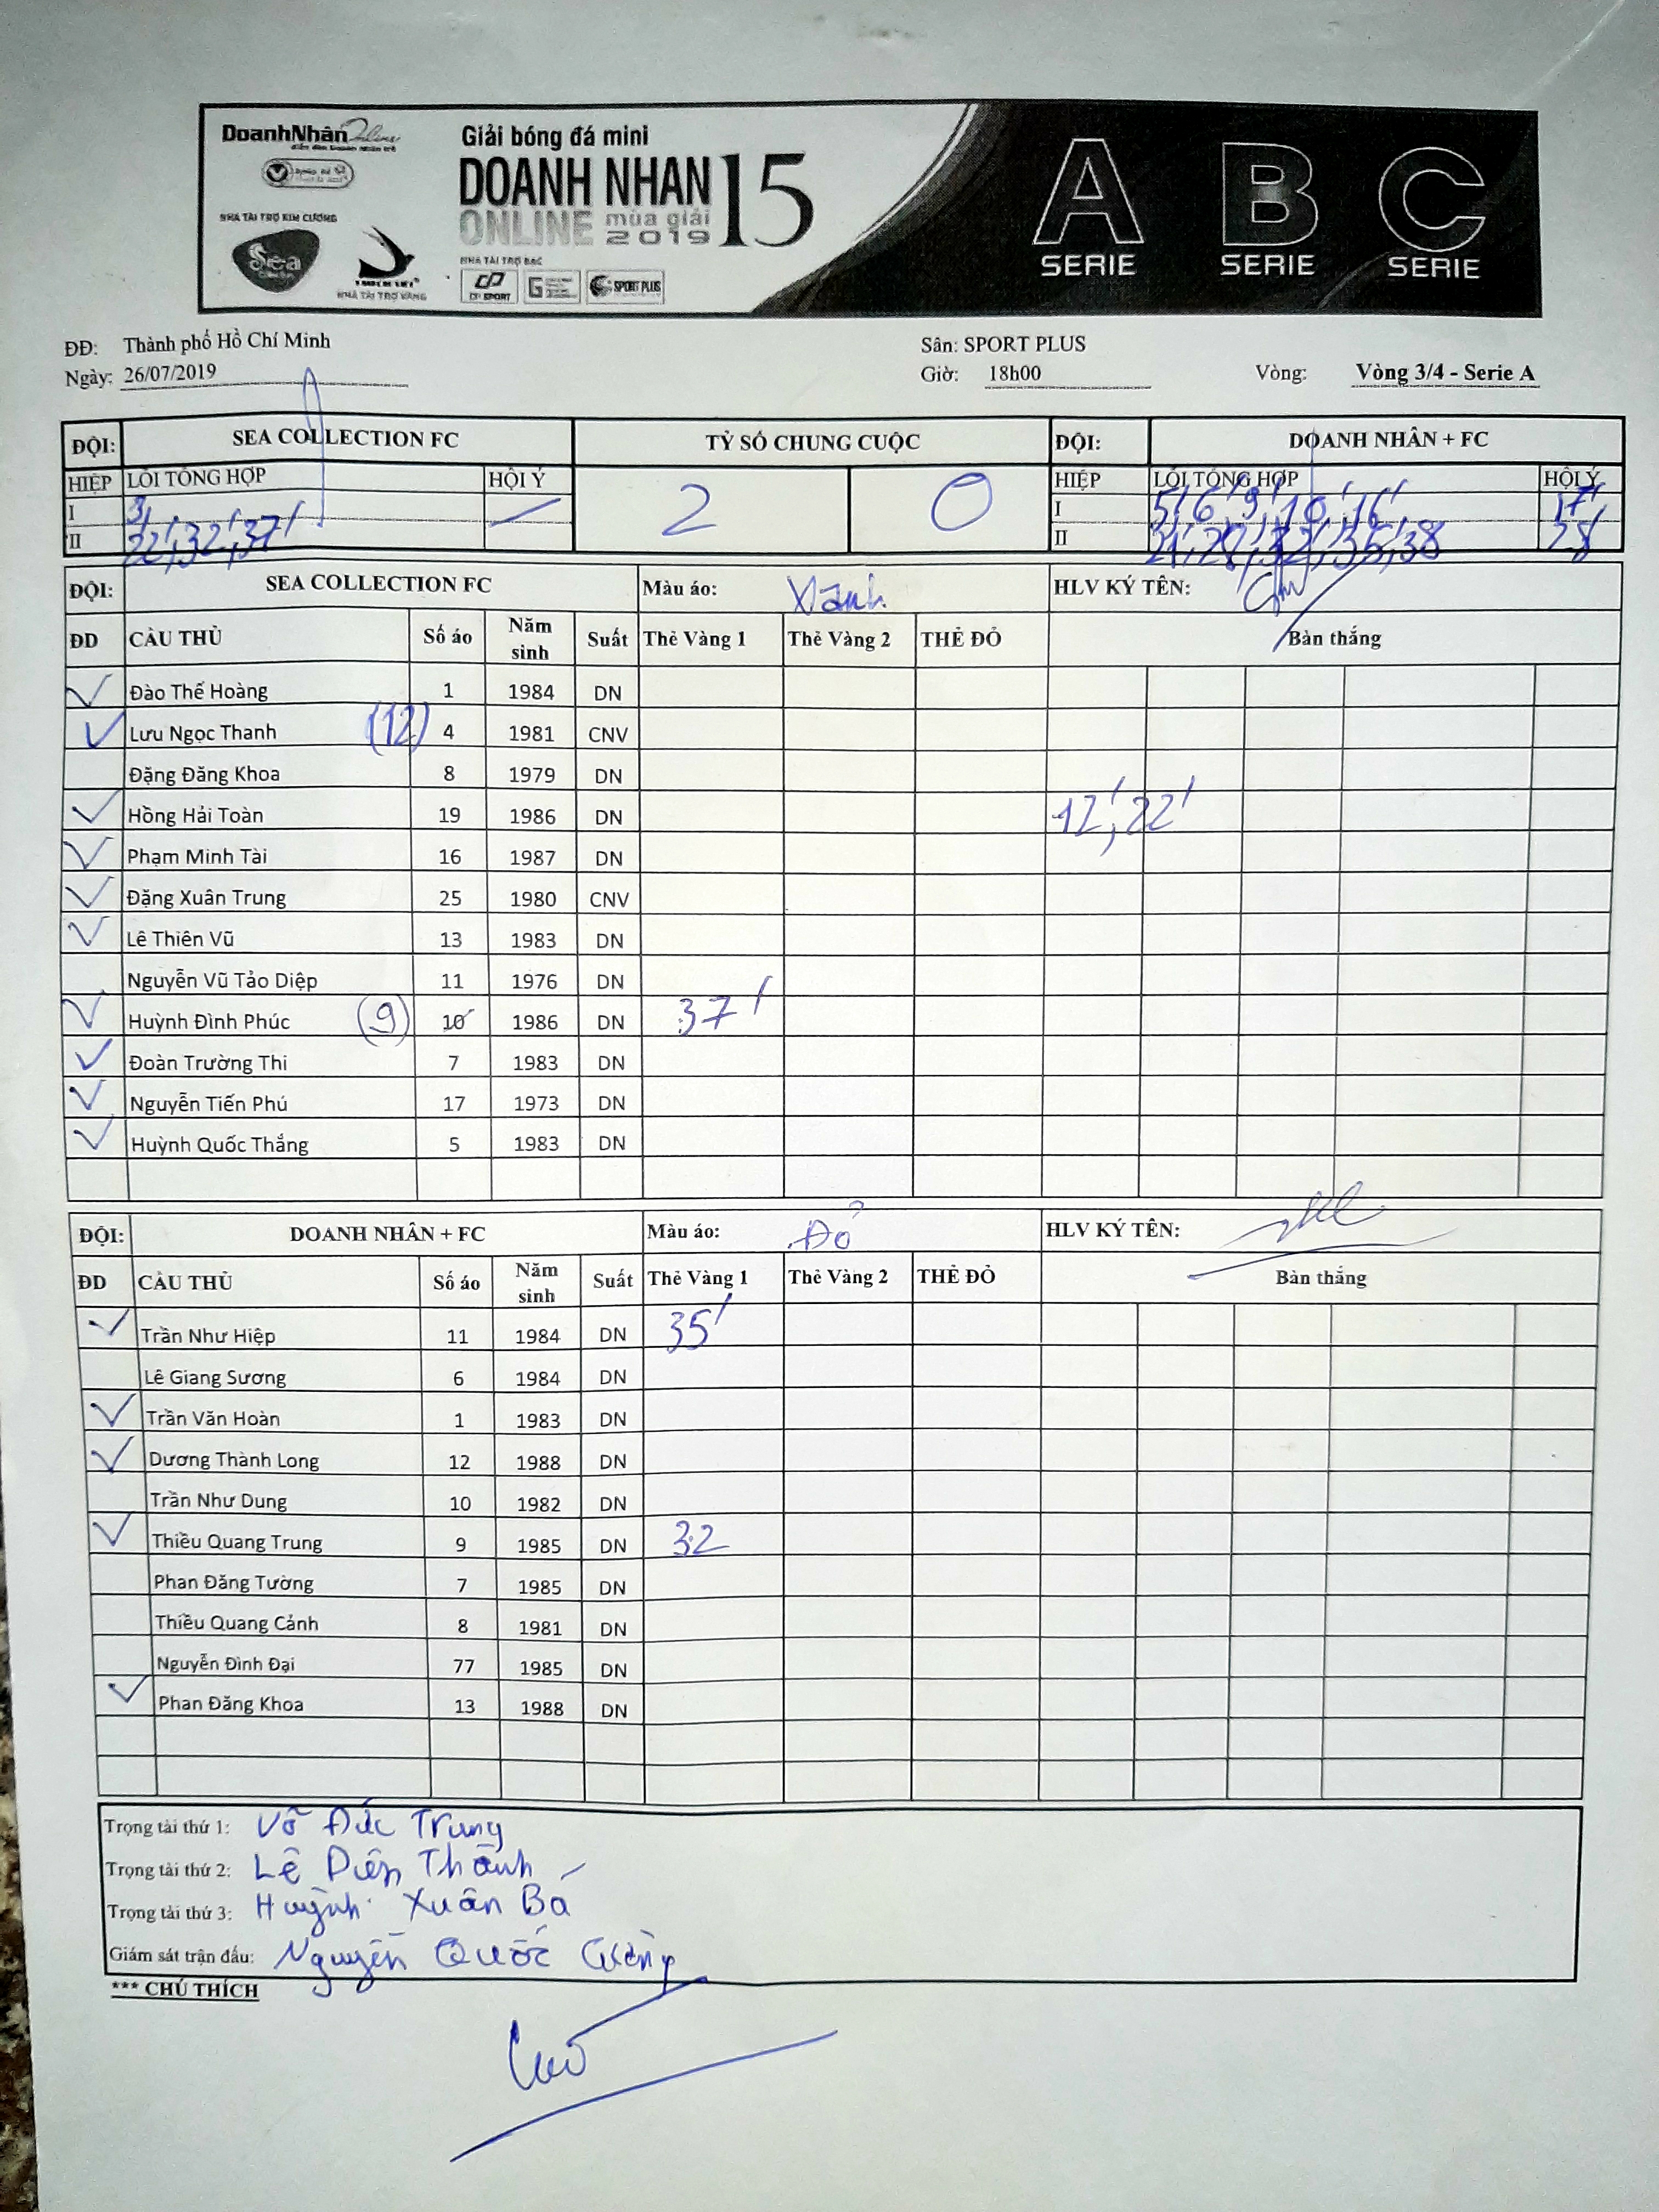 DoanhNhân Online
Giải bóng đá mini
DOANH NHAN 15
ONLINE mùa giải 2019
NHÀ TÀI TRỢ KIM CƯƠNG
Sea
NHÀ TÀI TRỢ VÀNG
NHÀ TÀI TRỢ BẠC
CP SPORT
SPORT PLUS
A SERIE B SERIE C SERIE
ĐĐ: Thành phố Hồ Chí Minh Sân: SPORT PLUS
Ngày: 26/07/2019 Giờ: 18h00 Vòng: Vòng 3/4 - Serie A
ĐỘI: SEA COLLECTION FC TỶ SỐ CHUNG CUỘC ĐỘI: DOANH NHÂN + FC
HIỆP LỖI TỔNG HỢP HỘI Ý 2 0 HIỆP LỖI TỔNG HỢP HỘI Ý
I 3' I 5' 6' 9' 10' 16' 17'
II 22', 32', 37' II 38
ĐỘI: SEA COLLECTION FC Màu áo: Xanh HLV KÝ TÊN:
ĐD CẦU THỦ Số áo Năm sinh Suất Thẻ Vàng 1 Thẻ Vàng 2 THẺ ĐỎ Bàn thắng
Đào Thế Hoàng 1 1984 DN
Lưu Ngọc Thanh (12) 4 1981 CNV
Đặng Đăng Khoa 8 1979 DN
Hồng Hải Toàn 19 1986 DN 12', 22'
Phạm Minh Tài 16 1987 DN
Đặng Xuân Trung 25 1980 CNV
Lê Thiên Vũ 13 1983 DN
Nguyễn Vũ Tảo Diệp 11 1976 DN
Huỳnh Đình Phúc (9) 10 1986 DN 37'
Đoàn Trường Thi 7 1983 DN
Nguyễn Tiến Phú 17 1973 DN
Huỳnh Quốc Thắng 5 1983 DN
ĐỘI: DOANH NHÂN + FC Màu áo: Đỏ HLV KÝ TÊN:
ĐD CẦU THỦ Số áo Năm sinh Suất Thẻ Vàng 1 Thẻ Vàng 2 THẺ ĐỎ Bàn thắng
Trần Như Hiệp 11 1984 DN 35'
Lê Giang Sương 6 1984 DN
Trần Văn Hoàn 1 1983 DN
Dương Thành Long 12 1988 DN
Trần Như Dung 10 1982 DN
Thiều Quang Trung 9 1985 DN 32
Phan Đăng Tường 7 1985 DN
Thiều Quang Cảnh 8 1981 DN
Nguyễn Đình Đại 77 1985 DN
Phan Đăng Khoa 13 1988 DN
Trọng tài thứ 1: Võ Đức Trung
Trọng tài thứ 2: Lê Diên Thành
Trọng tài thứ 3: Huỳnh Xuân Bá
Giám sát trận đấu: Nguyễn Quốc Cường
*** CHÚ THÍCH